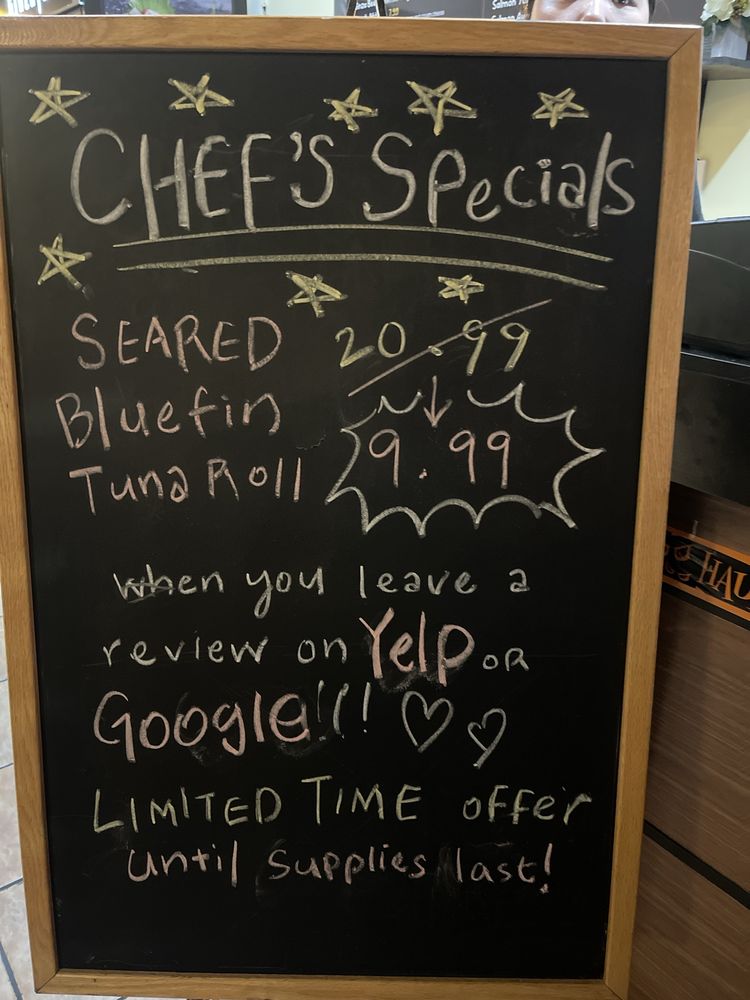 CHEF'S Specials
SEARED 20.99
Bluefin
Tuna Roll 9.99
when you leave a
review on Yelp OR
Google!!!
LIMITED TIME offer
until supplies last!
HAU
Salmon